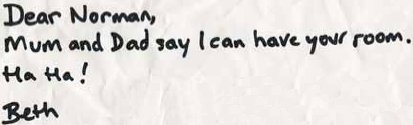 Dear Norman,
Mum and Dad say I can have your room.
Ha Ha!
Beth